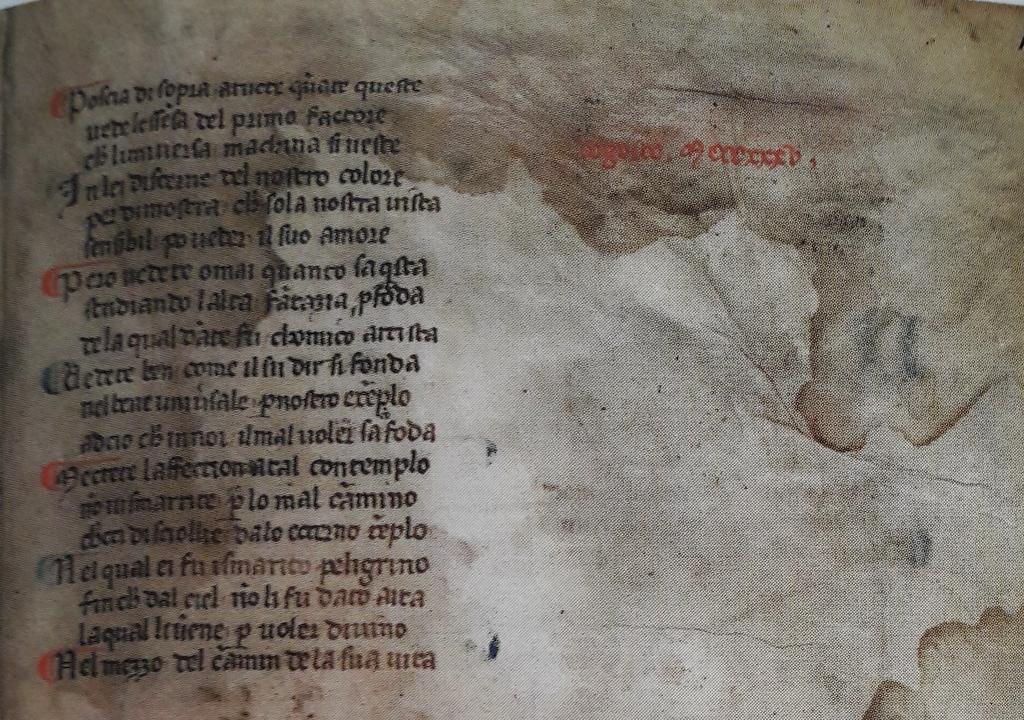 Poscia di sopra avuete q̃nate queste
uedelessẽsa del primo factore
ch̃ luniuersa machina si ueste
In lei discerne del nostro colore
per dimostrar ch̃ sola nostra uista
sensibil po ueder il suo amore
Pero uedete omai quanto saq̃sta
studiando lalta fãtasia, pfõda
de la qual dãte fu chomico artista
Vedete ben come il su dir si fonda
nel bene uniũsale pnostro exẽplo
adcio ch̃ innoi ilmal uoler sa foda
Mectete laffection atal contemplo
nõ uismarrite p̱ lo mal cãmino
che ci disciollie dalo eterno tẽplo
Nel qual ei fu ismarrito peligrino
fin ch̃ dal ciel nõ li fu dato aita
laqual li uẽne p̱ uoler diuino
Nel mezzo del cãmin de la sua uita
Mccccxxxv.